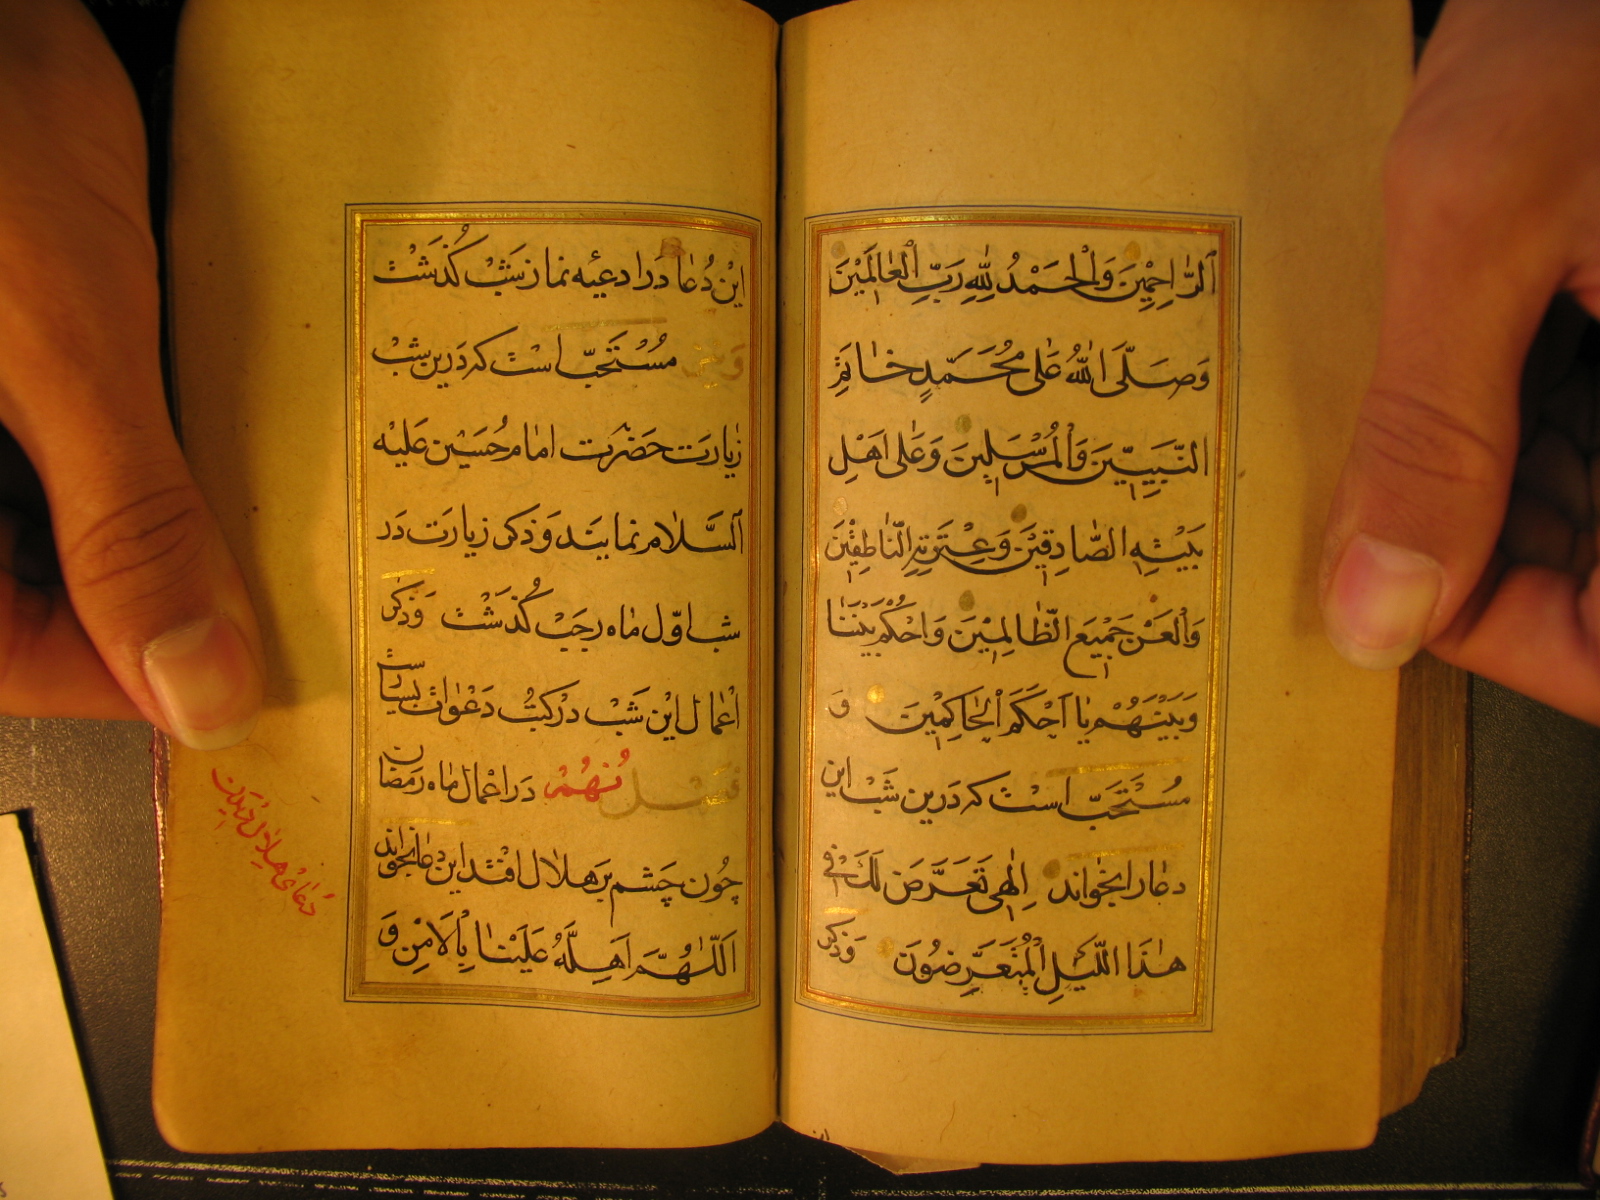 ٱلرّٰاحِمِينَ وَالْحَمْدُ لِلّٰهِ رَبِّ الْعٰالَمِيْنَ
وَصَلَّى اللّٰهُ عَلٰى مُحَمَّدٍ خٰاتَمِ
النَّبِيِّيْنَ وَالْمُرْسَلِيْنَ وَعَلٰى اَهْلِ
بَيْتِهِ الصّٰادِقِيْنَ وَعِتْرَتِهِ النّٰاطِقِيْنَ
وَالْعَنْ جَمِيْعَ الظّٰالِمِيْنَ وَاحْكُمْ بَيْنَنٰا
وَبَيْنَهُمْ يٰا اَحْكَمَ الْحٰاكِمِيْنَ وَ
مُسْتَحَبّ است كه دَرين شَبْ اين
دعا را بخواند اِلٰهِى تَعَرَّضَ لَكَ فِى
هٰذَا اللَّيْلِ الْمُتَعَرِّضُوْنَ وَذكر
اين دُعا دَر ادعيه نماز شَبْ گُذَشْت
وَ مُسْتَحَبّ است كه دَرين شب
زيارَت حَضْرَت امام حُسَيْن عَلَيْه
ٱلسَّلام نمايند وَ ذكر زيارَت دَر
شب اوّل ماه رجَبْ گُذَشْت وَ ذكر
اَعْمال اين شَبْ دَر كتُب دَعَوات بسيارست
فصل نُهُمْ دَر اعْمال ماه رَمَضان
چُون چَشم بَر هلال افتد اين دعا بخواند
اَللّٰهُمَّ اَهِلَّهُ عَلَيْنٰا بِالْاَمْنِ وَ
دُعٰاى هلال رمضان